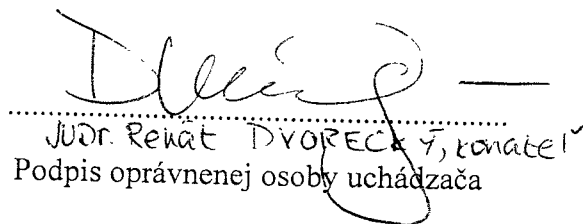 JUDr. Renát DVORECKÝ, konateľ
Podpis oprávnenej osoby uchádzača